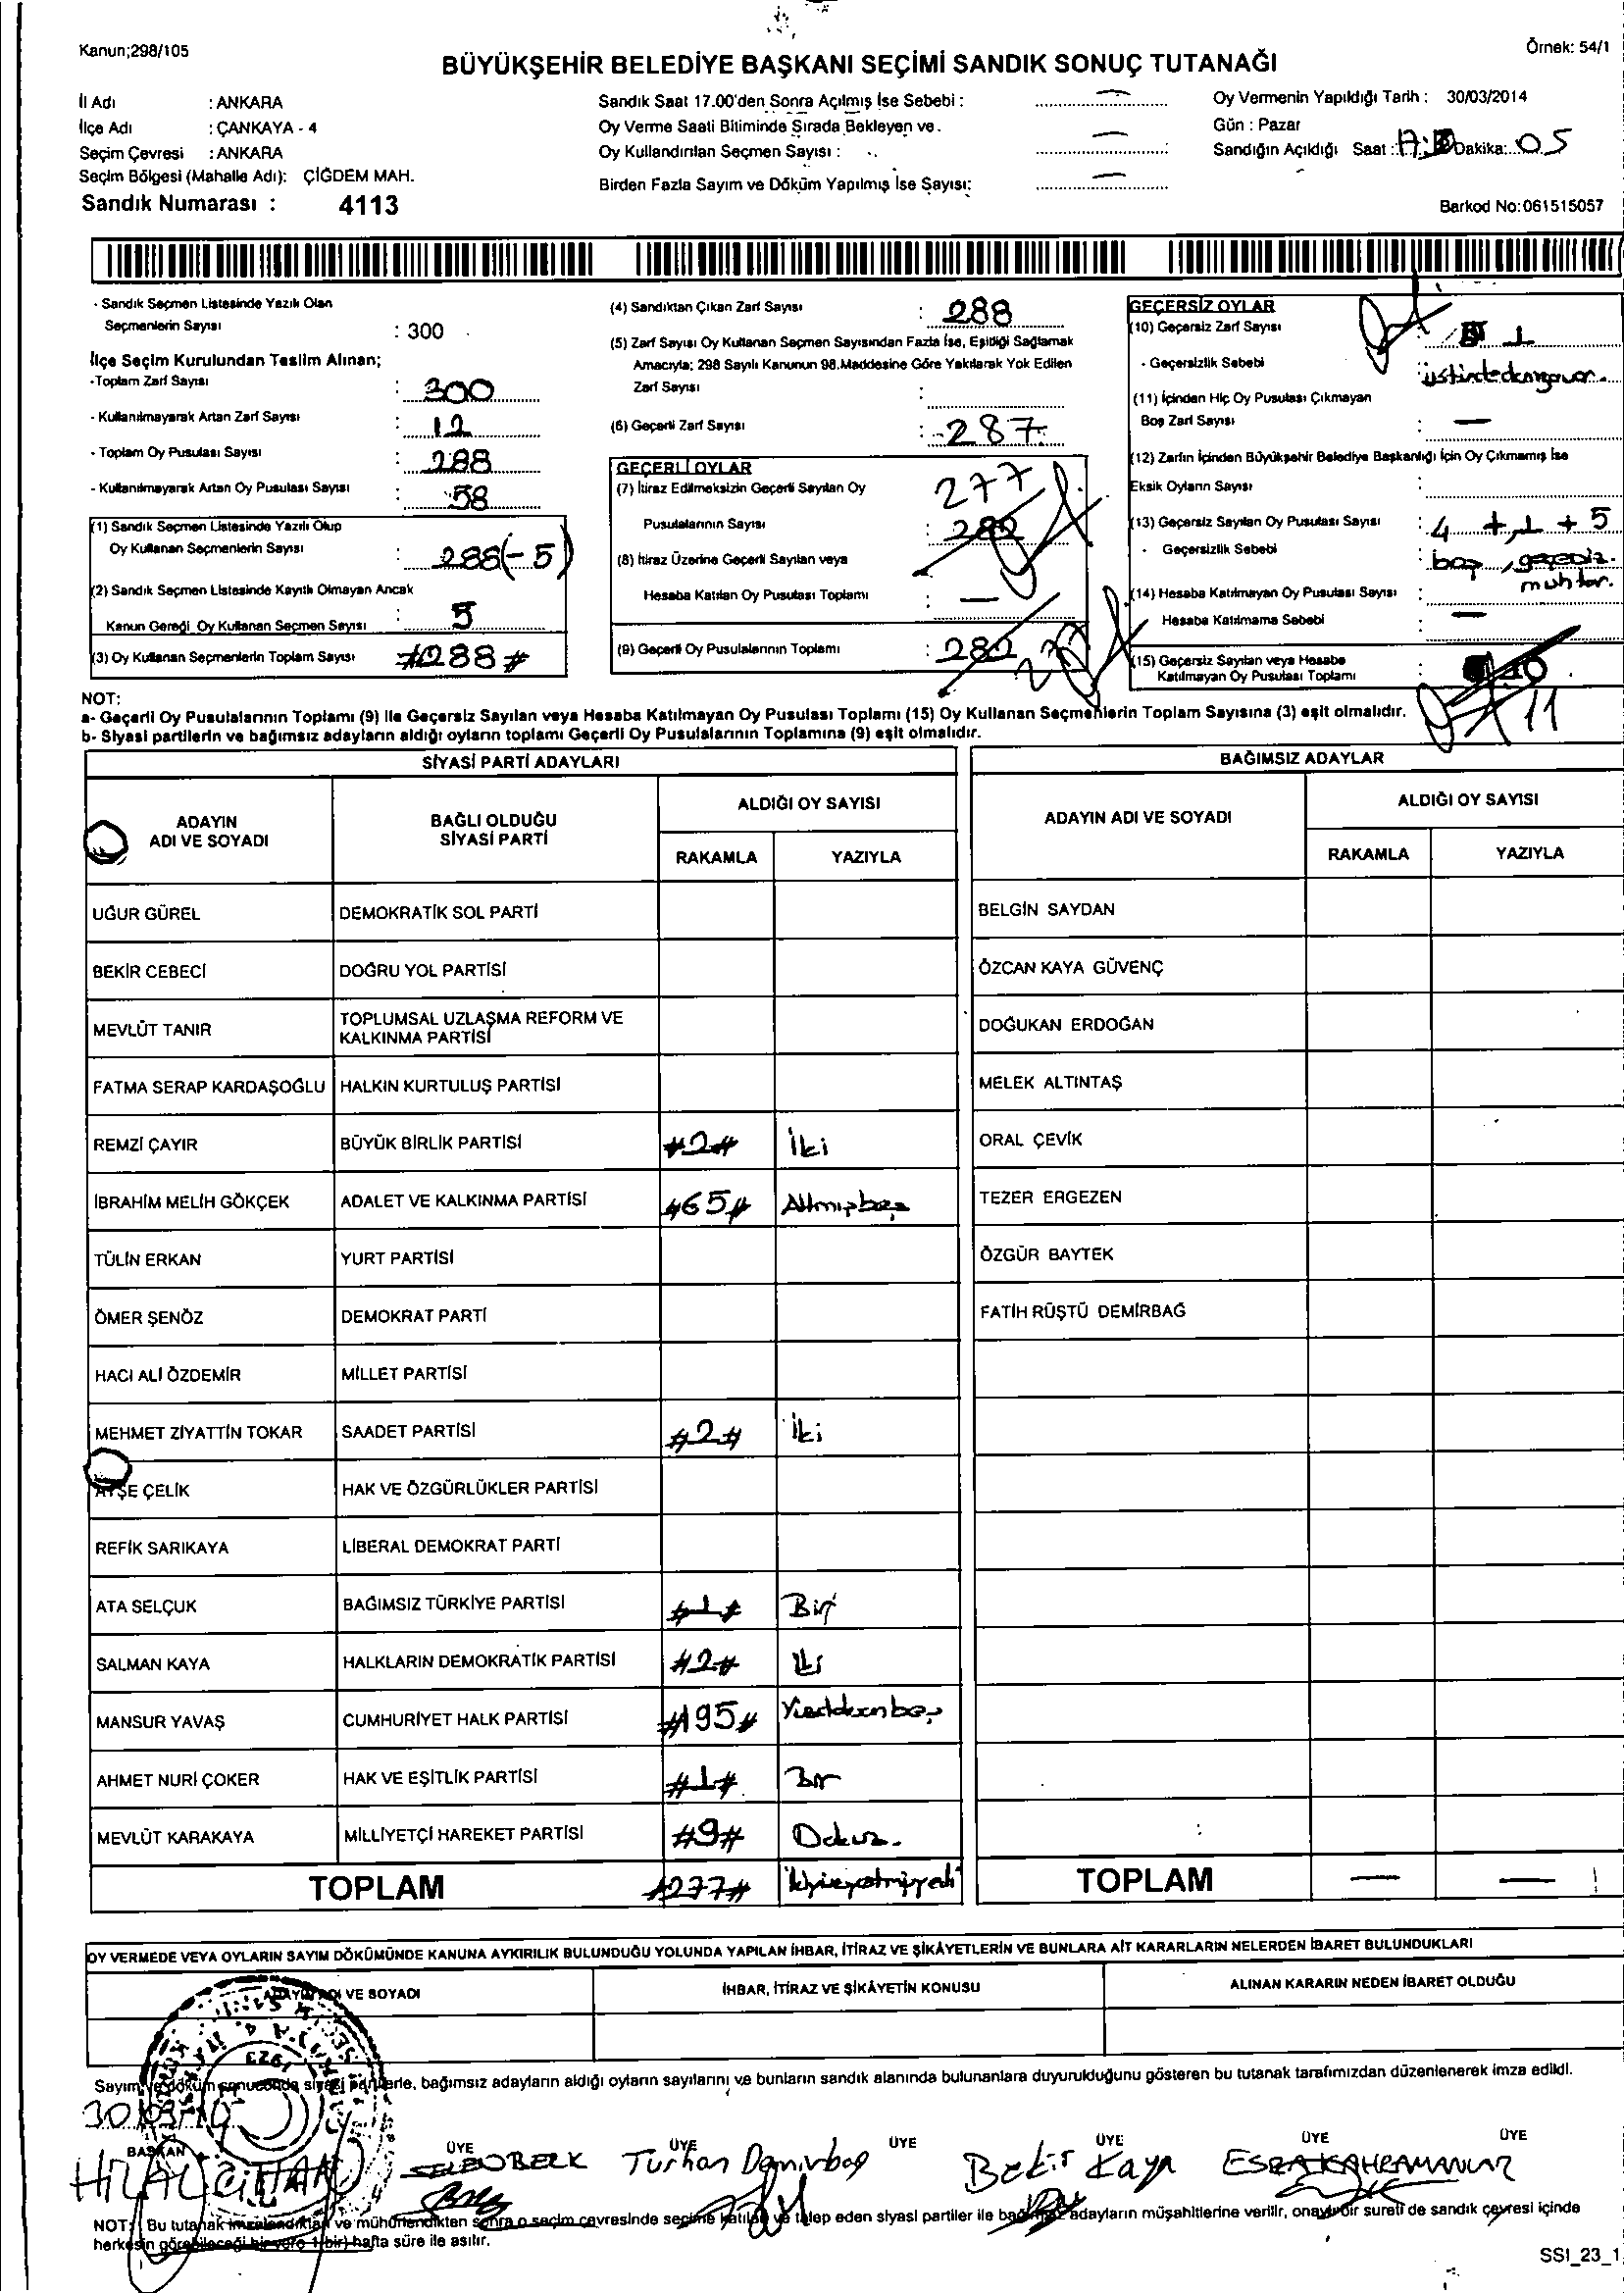 Kanun;298/105
Örnek: 54/1
BÜYÜKŞEHİR BELEDİYE BAŞKANI SEÇİMİ SANDIK SONUÇ TUTANAĞI
İl Adı : ANKARA
İlçe Adı : ÇANKAYA - 4
Seçim Çevresi : ANKARA
Seçim Bölgesi (Mahalle Adı): ÇİĞDEM MAH.
Sandık Numarası : 4113
Sandık Saat 17.00'den Sonra Açılmış İse Sebebi : —
Oy Verme Saati Bitiminde Sırada Bekleyen ve
Oy Kullandırılan Seçmen Sayısı : —
Birden Fazla Sayım ve Döküm Yapılmış İse Sayısı: —
Oy Vermenin Yapıldığı Tarih : 30/03/2014
Gün : Pazar
Sandığın Açıldığı Saat : Dakika: 05
Barkod No:061515057
- Sandık Seçmen Listesinde Yazılı Olan
Seçmenlerin Sayısı : 300
İlçe Seçim Kurulundan Teslim Alınan;
-Toplam Zarf Sayısı : 300
- Kullanılmayarak Artan Zarf Sayısı : 12
- Toplam Oy Pusulası Sayısı : 288
- Kullanılmayarak Artan Oy Pusulası Sayısı : 58
(1) Sandık Seçmen Listesinde Yazılı Olup
Oy Kullanan Seçmenlerin Sayısı : 288(-5)
(2) Sandık Seçmen Listesinde Kayıtlı Olmayan Ancak
Kanun Gereği Oy Kullanan Seçmen Sayısı : 5
(3) Oy Kullanan Seçmenlerin Toplam Sayısı #288#
(4) Sandıktan Çıkan Zarf Sayısı : 288
(5) Zarf Sayısı Oy Kullanan Seçmen Sayısından Fazla İse, Eşitliği Sağlamak
Amacıyla; 298 Sayılı Kanunun 98.Maddesine Göre Yakılarak Yok Edilen
Zarf Sayısı :
(6) Geçerli Zarf Sayısı : 287
GEÇERLİ OYLAR
(7) İtiraz Edilmeksizin Geçerli Sayılan Oy 277
Pusulalarının Sayısı : 282
(8) İtiraz Üzerine Geçerli Sayılan veya
Hesaba Katılan Oy Pusulası Toplamı : —
(9) Geçerli Oy Pusulalarının Toplamı : 282
GEÇERSİZ OYLAR
(10) Geçersiz Zarf Sayısı : 1
- Geçersizlik Sebebi :
(11) İçinden Hiç Oy Pusulası Çıkmayan
Boş Zarf Sayısı : —
(12) Zarfın İçinden Büyükşehir Belediye Başkanlığı İçin Oy Çıkmamış İse
Eksik Oyların Sayısı :
(13) Geçersiz Sayılan Oy Pusulası Sayısı : 4 + 1 + 5
- Geçersizlik Sebebi : boş, geçersiz.
muhtar.
(14) Hesaba Katılmayan Oy Pusulası Sayısı :
Hesaba Katılmama Sebebi : —
(15) Geçersiz Sayılan veya Hesaba
Katılmayan Oy Pusulası Toplamı : 10
11
NOT:
a- Geçerli Oy Pusulalarının Toplamı (9) İle Geçersiz Sayılan veya Hesaba Katılmayan Oy Pusulası Toplamı (15) Oy Kullanan Seçmenlerin Toplam Sayısına (3) eşit olmalıdır.
b- Siyasi partilerin ve bağımsız adayların aldığı oyların toplamı Geçerli Oy Pusulalarının Toplamına (9) eşit olmalıdır.
SİYASİ PARTİ ADAYLARI
ADAYIN ADI VE SOYADI
BAĞLI OLDUĞU SİYASİ PARTİ
ALDIĞI OY SAYISI
RAKAMLA YAZIYLA
UĞUR GÜREL DEMOKRATİK SOL PARTİ
BEKİR CEBECİ DOĞRU YOL PARTİSİ
MEVLÜT TANIR TOPLUMSAL UZLAŞMA REFORM VE KALKINMA PARTİSİ
FATMA SERAP KARDAŞOĞLU HALKIN KURTULUŞ PARTİSİ
REMZİ ÇAYIR BÜYÜK BİRLİK PARTİSİ #2# İki
İBRAHİM MELİH GÖKÇEK ADALET VE KALKINMA PARTİSİ #65# Altmışbeş
TÜLİN ERKAN YURT PARTİSİ
ÖMER ŞENÖZ DEMOKRAT PARTİ
HACI ALİ ÖZDEMİR MİLLET PARTİSİ
MEHMET ZİYATTİN TOKAR SAADET PARTİSİ #2# İki
AYŞE ÇELİK HAK VE ÖZGÜRLÜKLER PARTİSİ
REFİK SARIKAYA LİBERAL DEMOKRAT PARTİ
ATA SELÇUK BAĞIMSIZ TÜRKİYE PARTİSİ #1# Bir
SALMAN KAYA HALKLARIN DEMOKRATİK PARTİSİ #2# İki
MANSUR YAVAŞ CUMHURİYET HALK PARTİSİ #195#
AHMET NURİ ÇOKER HAK VE EŞİTLİK PARTİSİ #1# Bir
MEVLÜT KARAKAYA MİLLİYETÇİ HAREKET PARTİSİ #9# Dokuz.
TOPLAM #277#
BAĞIMSIZ ADAYLAR
ADAYIN ADI VE SOYADI
ALDIĞI OY SAYISI
RAKAMLA YAZIYLA
BELGİN SAYDAN
ÖZCAN KAYA GÜVENÇ
DOĞUKAN ERDOĞAN
MELEK ALTINTAŞ
ORAL ÇEVİK
TEZER ERGEZEN
ÖZGÜR BAYTEK
FATİH RÜŞTÜ DEMİRBAĞ
TOPLAM — —
OY VERMEDE VEYA OYLARIN SAYIM DÖKÜMÜNDE KANUNA AYKIRILIK BULUNDUĞU YOLUNDA YAPILAN İHBAR, İTİRAZ VE ŞİKÂYETLERİN VE BUNLARA AİT KARARLARIN NELERDEN İBARET BULUNDUKLARI
ADAYIN ADI VE SOYADI
İHBAR, İTİRAZ VE ŞİKÂYETİN KONUSU
ALINAN KARARIN NEDEN İBARET OLDUĞU
Sayım ve döküm sonucunda siyasi partilerle, bağımsız adayların aldığı oyların sayılarını ve bunların sandık alanında bulunanlara duyurulduğunu gösteren bu tutanak tarafımızdan düzenlenerek imza edildi.
BAŞKAN ÜYE ÜYE ÜYE ÜYE ÜYE ÜYE
HİLAL Turhan Demirbaş Bekir Kaya ESRA KAHRAMANLAR
NOT: Bu tutanak imzalandıktan ve mühürlendikten sonra o seçim çevresinde seçime katılan ve talep eden siyasi partiler ile bağımsız adayların müşahitlerine verilir, onaylı bir sureti de sandık çevresi içinde
herkesin görebileceği bir yere 1(bir) hafta süre ile asılır.
SSI_23_1